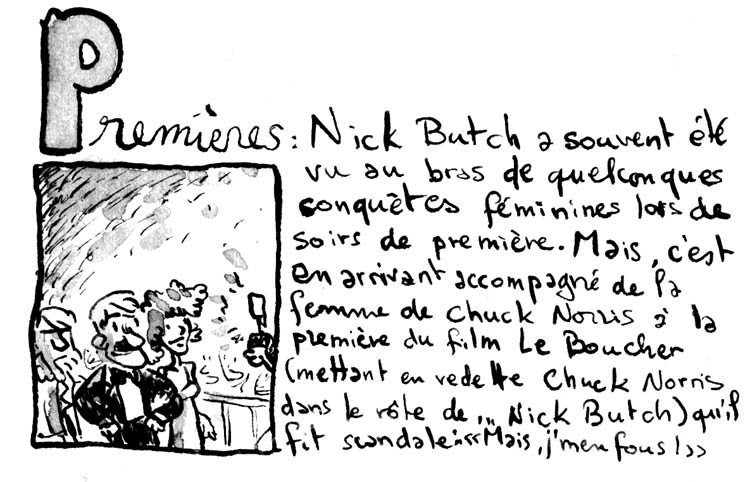 Premières: Nick Butch a souvent été
vu au bras de quelconques
conquêtes féminines lors de
soirs de première. Mais, c'est
en arrivant accompagné de la
femme de Chuck Norris à la
première du film Le Boucher
(mettant en vedette Chuck Norris
dans le rôle de... Nick Butch) qu'il
fit scandale: «Mais, j'men fous!»